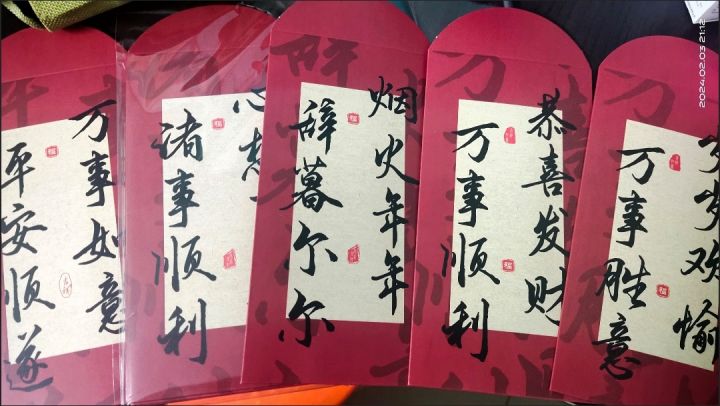 万事如意
平安顺遂
心想
诸事顺利
烟火年年
辞暮尔尔
恭喜发财
万事顺利
岁岁欢愉
万事胜意
福
福
福
福
2024.02.03 21:12